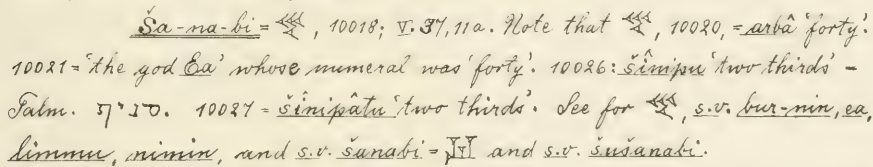 Ša-na-bi = 𒐏, 10018; V. 37, 11a. Note that 𒐏, 10020, = arbâ 'forty'.
10021 = 'the god Ea' whose numeral was 'forty'. 10026: šinipu 'two thirds' -
Talm. סניף. 10027 = šinipâtu 'two thirds'. See for 𒐏, s.v. bur-nin, ea,
limmu, nimin, and s.v. šunabi = and s.v. šušanabi.